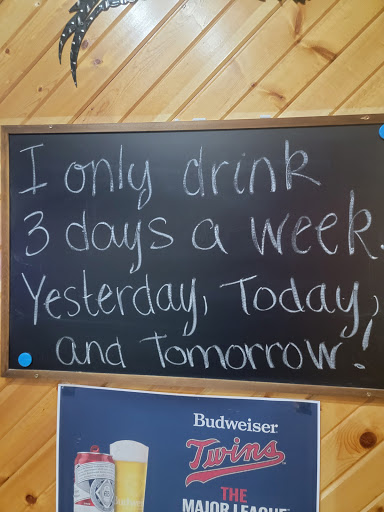 I only drink
3 days a week.
Yesterday, Today,
and Tomorrow!
Budweiser
Twins
THE
MAJOR LEAGUE